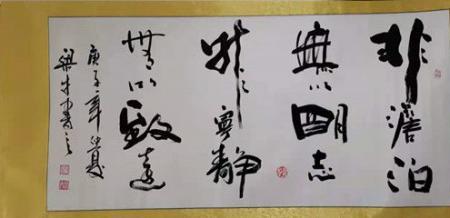 非澹泊
無以明志
非寧静
無以致遠
庚子年仲夏
梁書